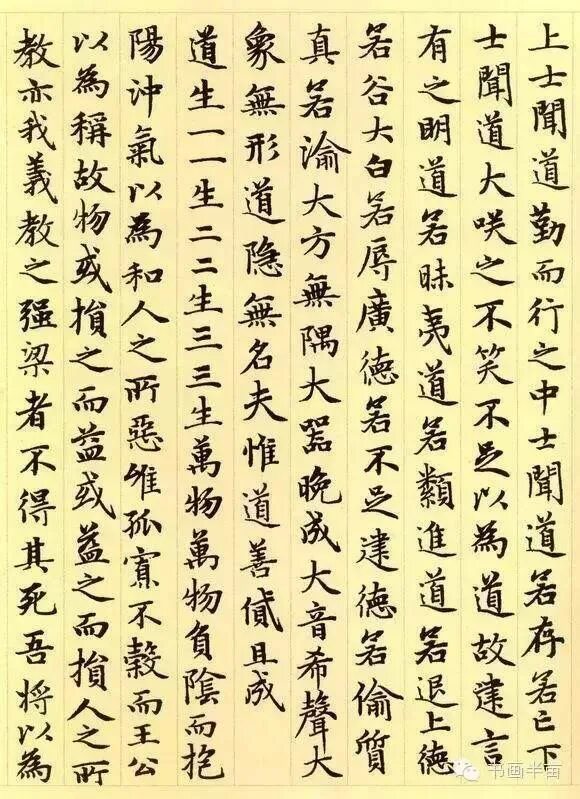 上士聞道勤而行之中士聞道若存若亡下
士聞道大咲之不笑不足以為道故建言
有之明道若昧夷道若纇進道若退上德
若谷大白若辱廣德若不足建德若偷質
真若渝大方無隅大器晚成大音希聲大
象無形道隐無名夫惟道善貸且成
道生一一生二二生三三生萬物萬物負陰而抱
陽沖氣以為和人之所惡唯孤寡不穀而王公
以為稱故物或損之而益或益之而損人之所
教亦我義教之强梁者不得其死吾將以為
书画半亩